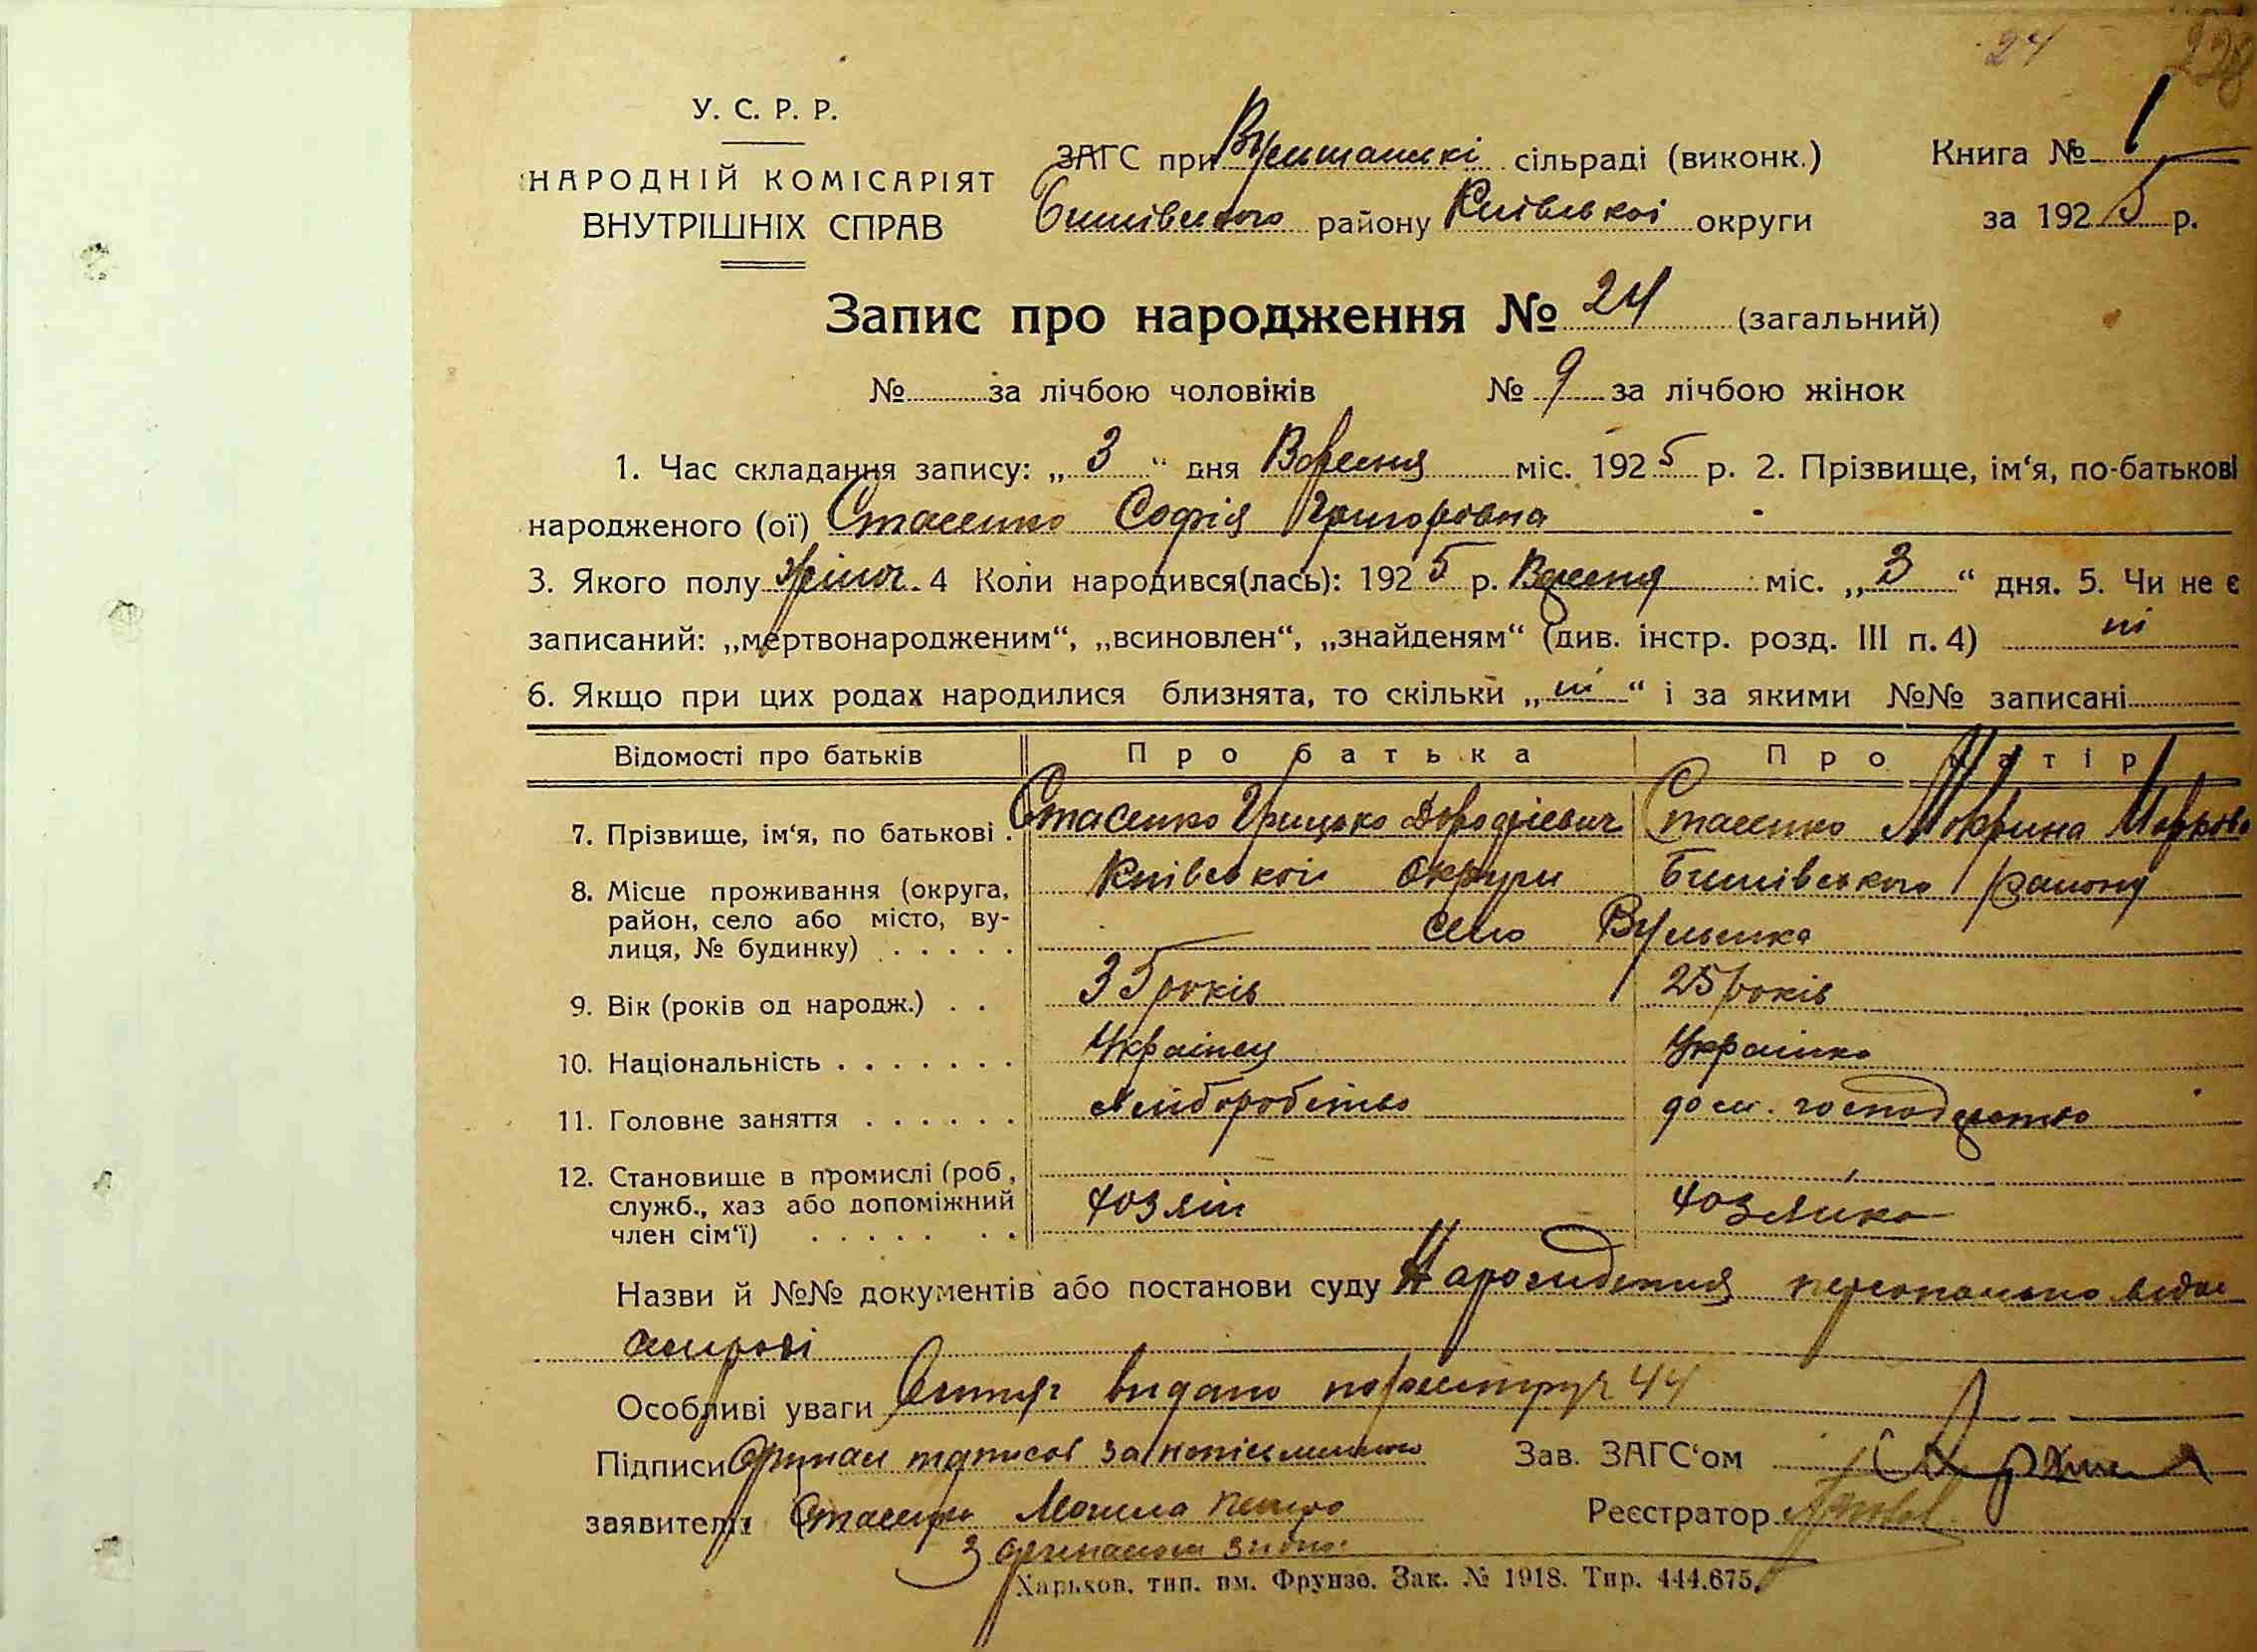 24 228
У. С. Р. Р.
НАРОДНІЙ КОМІСАРІЯТ
ВНУТРІШНІХ СПРАВ
ЗАГС при сільраді (виконк.)
Бишівського району Київської округи
Книга № 1
за 1925 р.
Запис про народження № 24 (загальний)
№ за лічбою чоловіків № 9 за лічбою жінок
1. Час складання запису: „ 3 “ дня Вересня міс. 1925 р. 2. Прізвище, ім‘я, по-батькові
народженого (ої) Стасенко Софія Григоровна
3. Якого полу жіноч. 4 Коли народився(лась): 1925 р. Вересня міс. „ 3 “ дня. 5. Чи не є
записаний: „мертвонародженим“, „всиновлен“, „знайденям“ (див. інстр. розд. III п. 4) ні
6. Якщо при цих родах народилися близнята, то скільки „ ні “ і за якими №№ записані
Відомості про батьків Про батька Про матір
7. Прізвище, ім‘я, по батькові . Стасенко Грицько Дорофієвич Стасенко Мокрина Марков
8. Місце проживання (округа, Київської округи Бишівського району
район, село або місто, ву- село Вульшка
лиця, № будинку) . . . . .
9. Вік (років од народж.) . . 35 років 25 років
10. Національність . . . . . . . Українец Українка
11. Головне заняття . . . . . . хліборобство дом. господарство
12. Становище в промислі (роб ,
служб., хаз або допоміжний хозяїн хозяйка
член сім‘ї) . . . . . . .
Назви й №№ документів або постанови суду Народження персонально
Особливі уваги видано 44
Підписи за
заявителя Стасенко Могила Петро
Зав. ЗАГС‘ом
Реєстратор
З
Харьков. тип. им. Фрунзе. Зак. № 1918. Тир. 444.675.